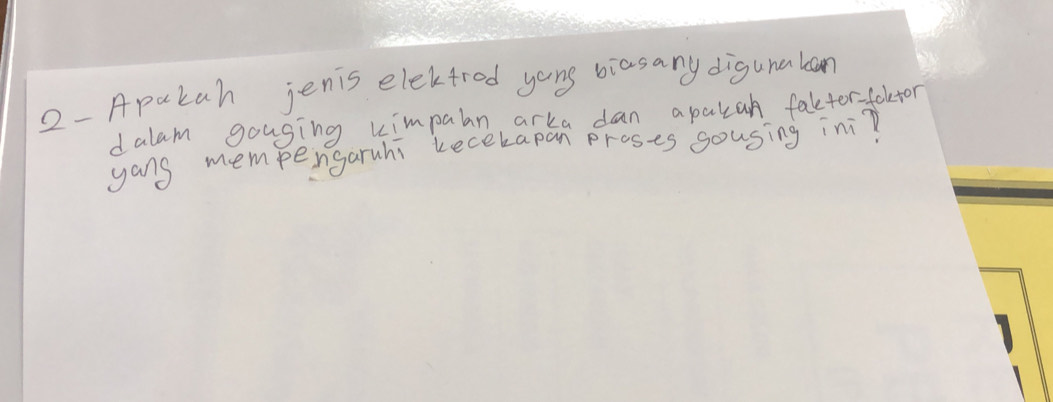 2- Apakah jenis elektrod yang biasany digunakan
dalam gouging kimpalan arka dan apakah faktor-faktor
yang mempengaruhi kecekapan proses gouging ini?